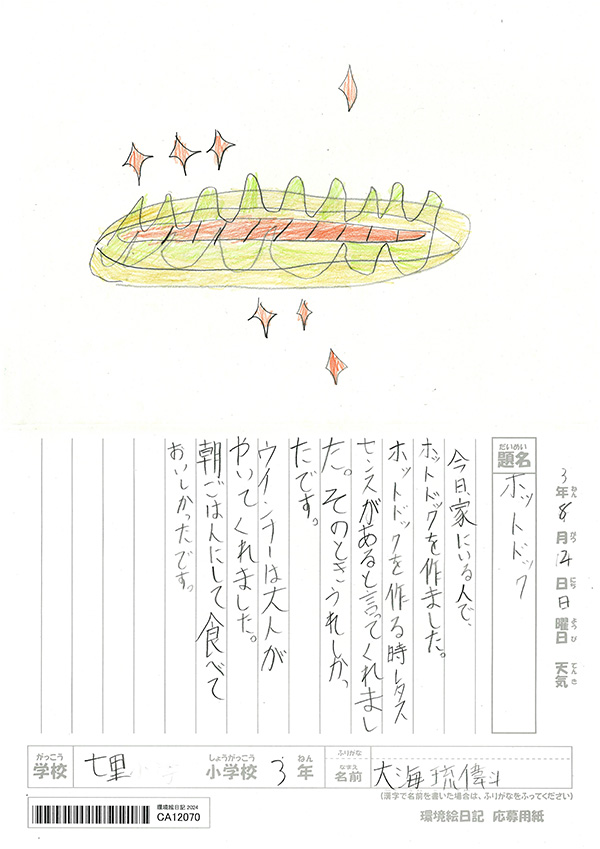 3年ねん 8月がつ 12日にち 日曜日ようび 天気てんき
だいめい
題名
ホットドック
今日、家にいる人で、
ホットドックを作ました。
ホットドックを作る時レタス
センスがあると言ってくれまし
た。そのときうれしかっ
たです。
ウインナーは大人が
やいてくれました。
朝ごはんにして食べて
おいしかったです。
がっこう
学校
七里
しょうがっこう
小学校
3年ねん
ふりがな
なまえ
名前
大海琉偉斗
(漢字で名前を書いた場合は、ふりがなをふってください)
環境絵日記 2024
CA12070
環境絵日記 応募用紙